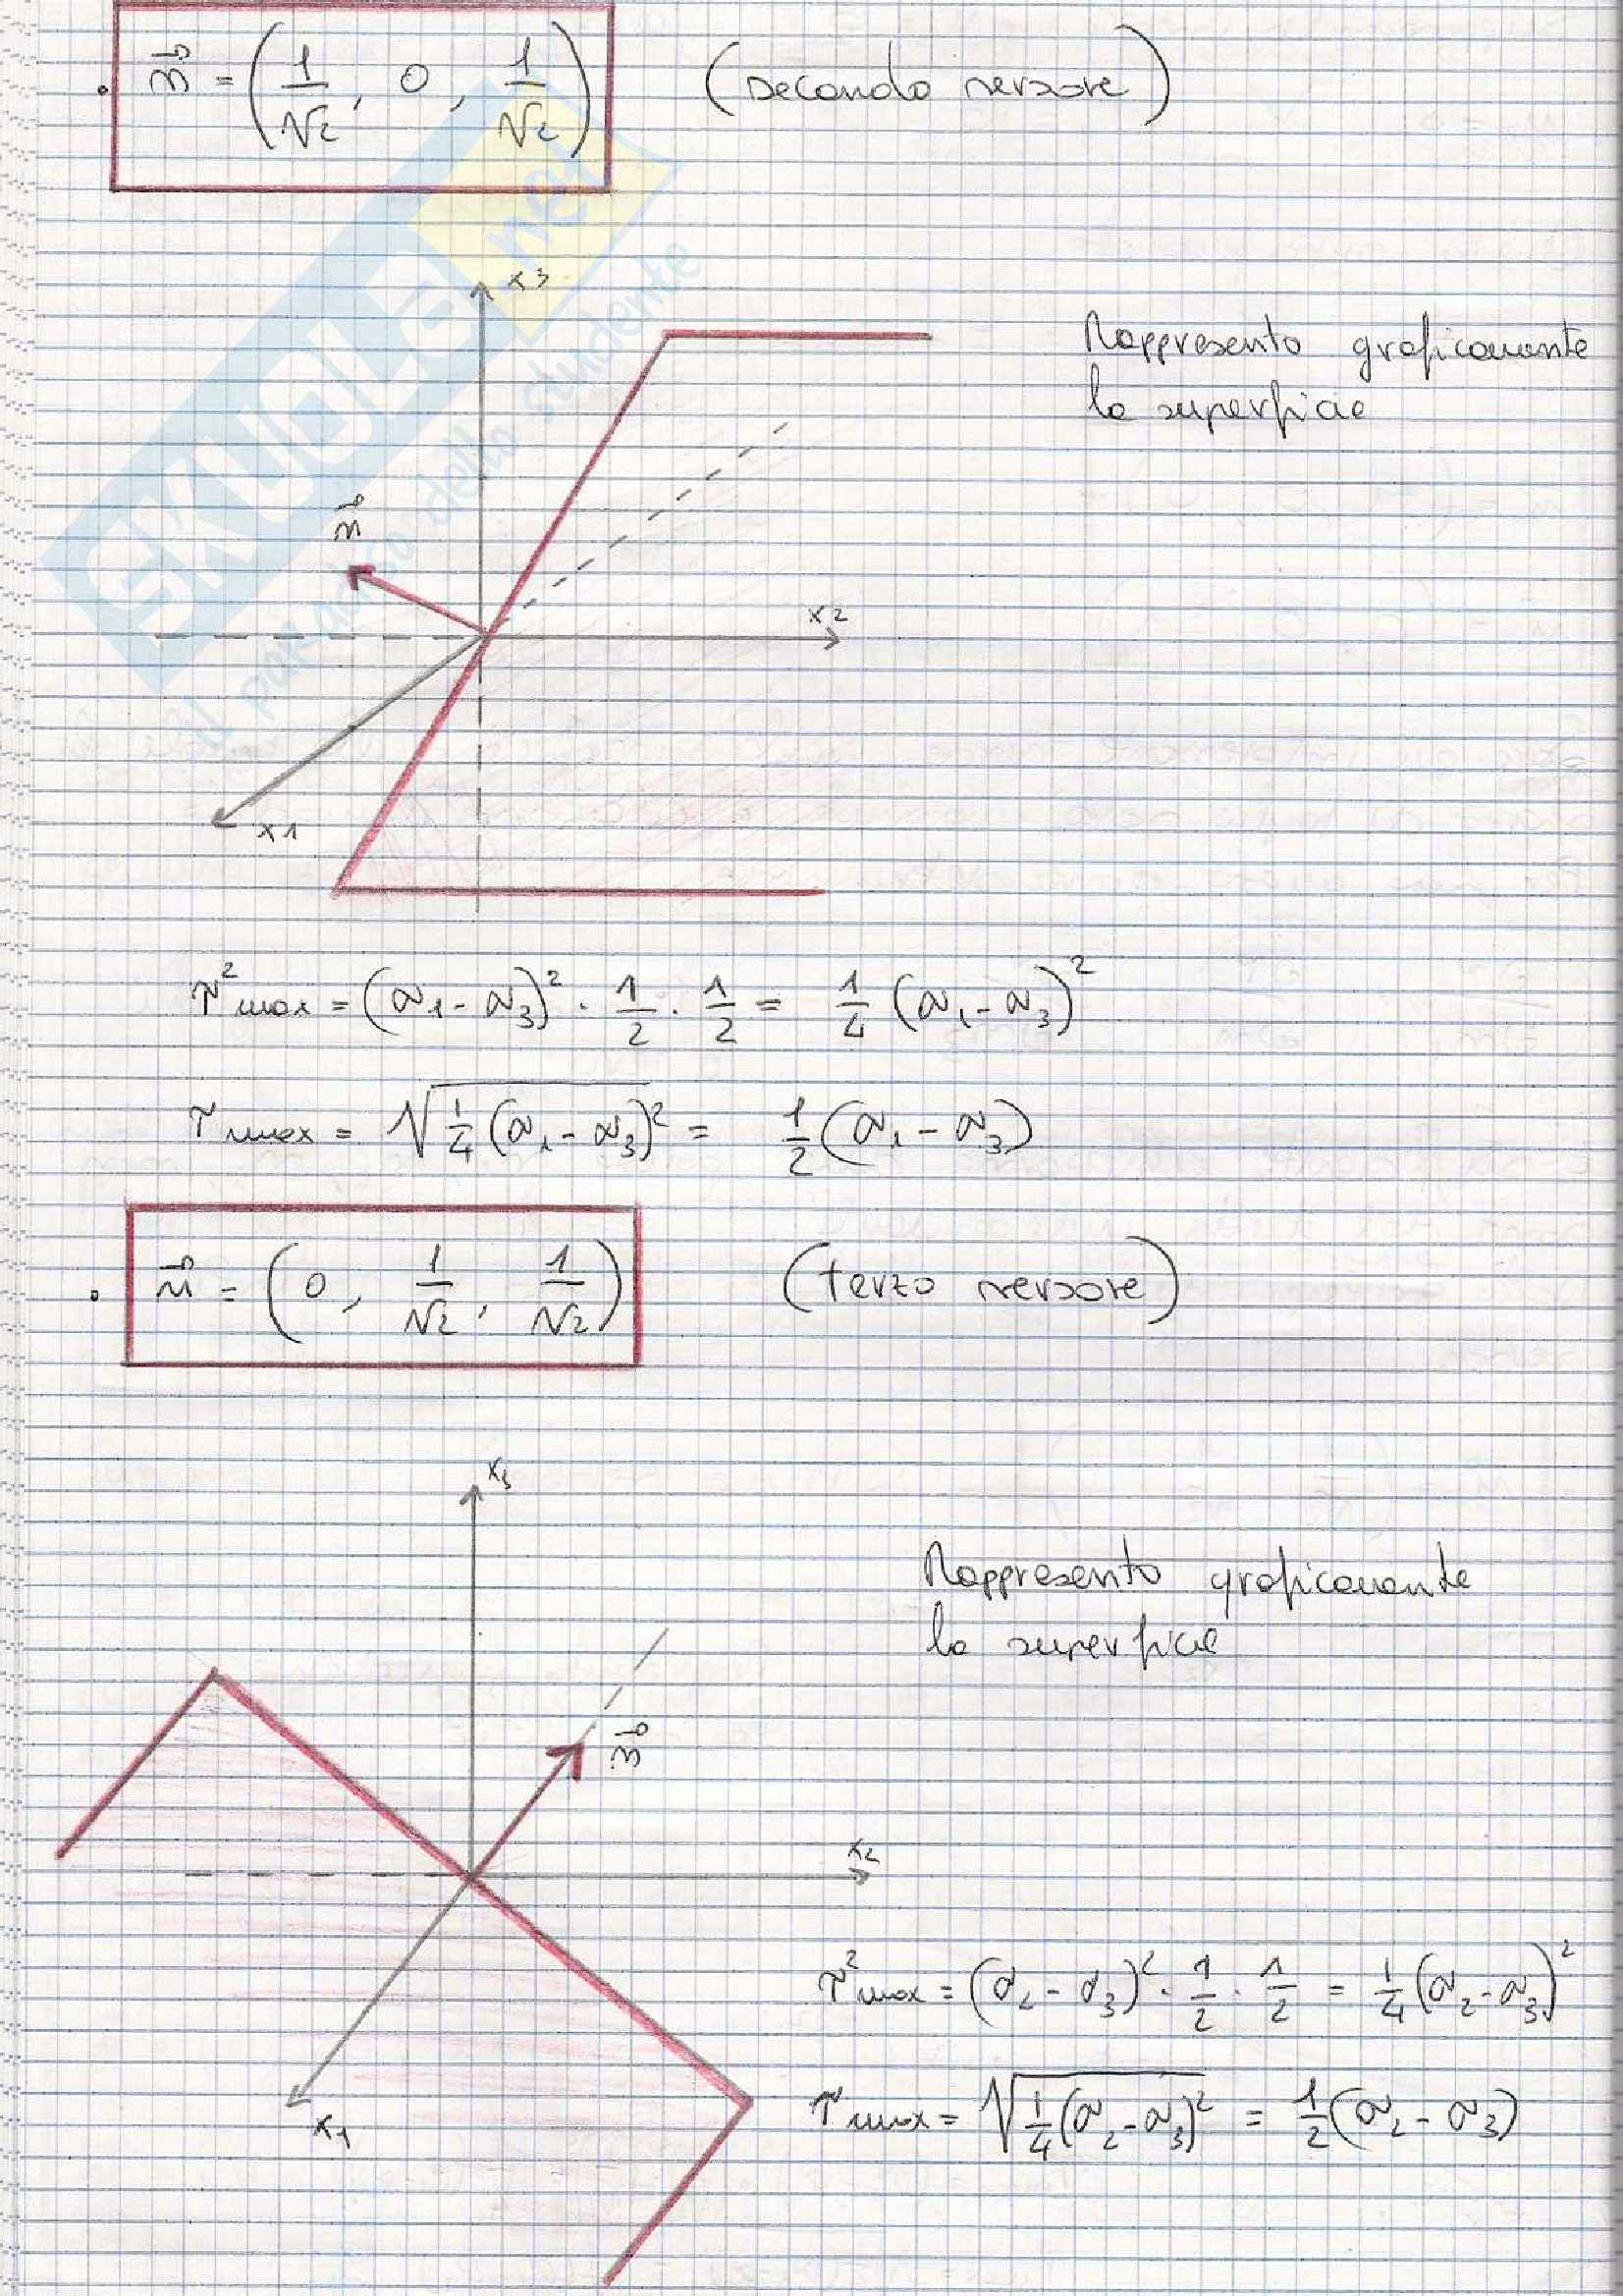 • n⃗ = (1/√2, 0, 1/√2) (secondo versore)
SKUOLA.net
il paradiso dello studente
x3
Rappresento graficamente
la superficie
n⃗
x2
x1
τ²max = (σ1 - σ3)² · 1/2 · 1/2 = 1/4 (σ1 - σ3)²
τmax = √(1/4 (σ1 - σ3)²) = 1/2 (σ1 - σ3)
• n⃗ = (0, 1/√2, 1/√2) (terzo versore)
x3
Rappresento graficamente
la superficie
n⃗
x2
τ²max = (σ2 - σ3)² · 1/2 · 1/2 = 1/4 (σ2 - σ3)²
τmax = √(1/4 (σ2 - σ3)²) = 1/2 (σ2 - σ3)
x1